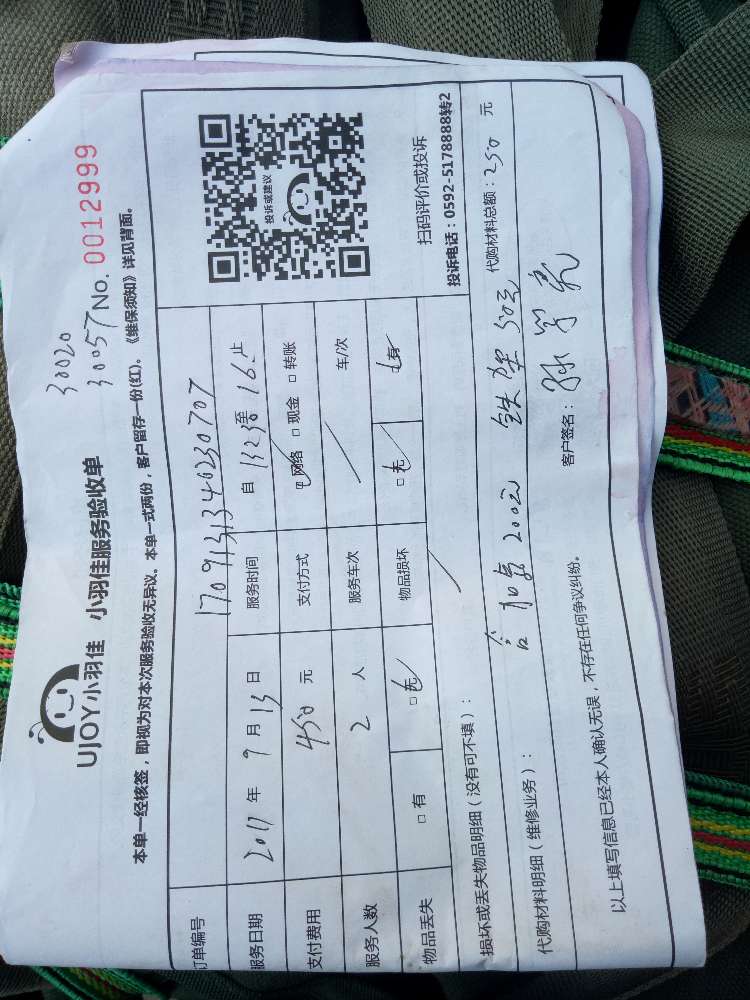 UJOY小羽佳 小羽佳服务验收单
30020
30057 No. 0012999
本单一经核签，即视为对本次服务验收无异议。本单一式两份，客户留存一份(红)。《维保须知》详见背面。
订单编号 1709131340230707
服务日期 2017 年 9 月 13 日 服务时间 自 1330 至 16 止
支付费用 450 元 支付方式 网络 □ 现金 □ 转账
服务人数 2 人 服务车次 车/次
物品丢失 □ 有 □ 无 物品损坏 □ 无 □ 有
投诉或建议
扫码评价或投诉
投诉电话：0592-5178888转2
损坏或丢失物品明细（没有可不填）：
代购材料明细（维修业务）： 200元 50元 代购材料总额：250 元
以上填写信息已经本人确认无误，不存在任何争议纠纷。
客户签名：